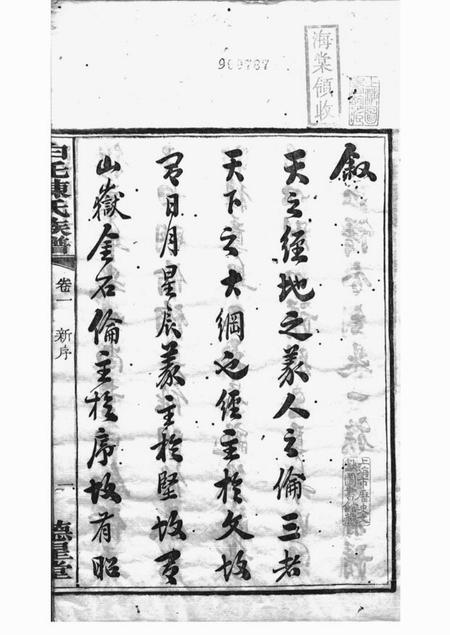 969787
海棠領收
敘
天之經地之義人之倫三者
天下之大綱也經主於文故
有日月星辰義主於堅故有
山嶽金石倫主於序故有昭
白毛陳氏族譜
卷一
新序
一
德星堂